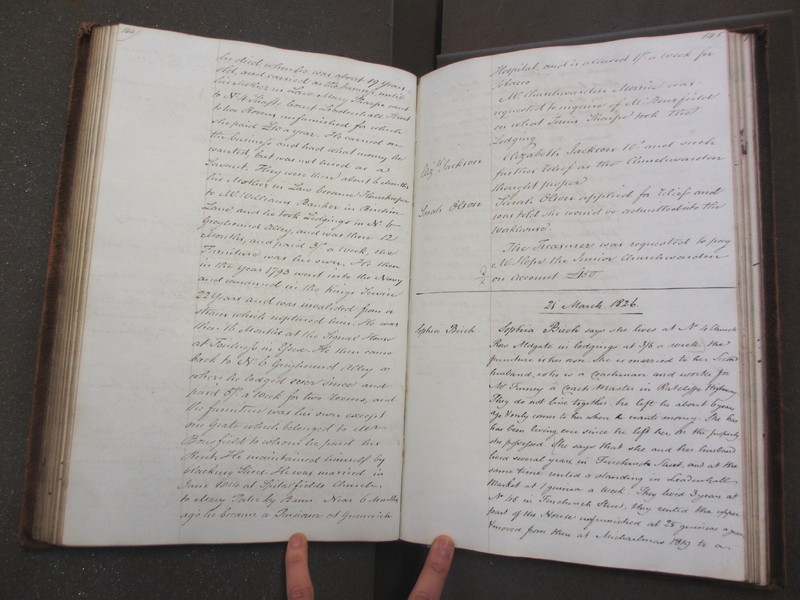 144
he died when he was about 19 Years
Old, and carried on the business, until
his Mother in Law Mary Sharpe went
to No 4 Shafts Court Leadenhall Street
to two Rooms unfurnished for which
She paid £10 a Year. He carried on
the business and had what money he
wanted, but was not hired as a
Servant. They were there about 6 Months
his Mother in Law became Housekeeper
to Mr Williams Banker in Birchin
Lane and he took Lodgings in No 6
Greyhound Alley, and was there 12
Months, and paid 3/ a Week, the
Furniture was his own. He then
in the Year 1793 went into the Navy
and remained in the Kings Service
22 Years and was invalided from a
strain which ruptured him. He was
then Months at the Signal House
at in Fife. He then came
back to No 6 Greyhound Alley
where he lodged ever since and
paid a Week for two Rooms, and
the furniture was his own except
one Grate which belonged to
Bousfield to whom he paid the
Rent. He maintained himself by
blacking Shoes. He was married in
June 1814 at Spitalfields Church
to Mary by Banns. Near 6 Months
ago he became a Pensioner at Greenwich
145
Hospital, and is allowed 1/ a week for
Tobacco
Mr Churchwarden was
requested to inquire of Mr Bousfield
on what Terms Sharpe took the
Lodging
Elizth Jackson
Elizabeth Jackson 10/ and such
further relief as the Churchwarden
thought proper
Sarah Olson
Sarah Olson applied for relief and
was told she would be admitted into the
Workhouse
The Treasurer was requested to pay
Mr Hope the Senior Churchwarden
on Account £50
21 March 1826.
Sophia Birch
Sophia Birch says she lives at No 4 Church
Row Aldgate in lodgings at 3/6 a week, the
furniture is her own. She is married to her Second
husband, who is a Coachman and works for
Mr a Coach Master in Ratcliffe Highway
They do not live together. he left her about 6 years
ago & only comes to her when he wants money. She has
has been living ever since he left her on the property
she possessed. She says that she and her husband
lived several years in Fenchurch Street, and at the
same time rented a standing in Leadenhall
Market at 1 guinea a week. They lived 3 years at
No 48 in Fenchurch Street, they rented the upper
part of the House unfurnished at 28 guineas a year
& moved from there at Michaelmas 1819 to a